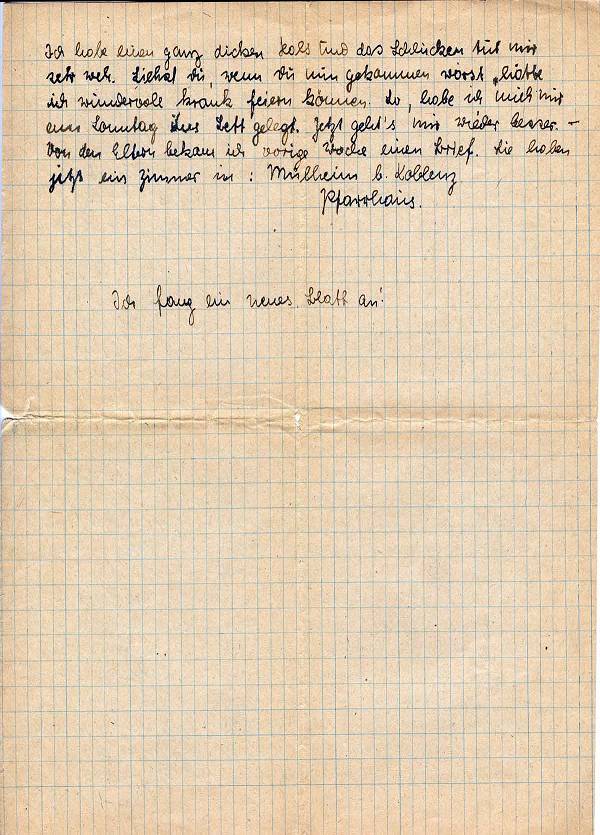 Ich habe einen ganz dicken Hals und das Schlucken tut mir
sehr weh. Siehst Du, wenn Du nun gekommen wärst, hätte
ich wundervoll krank feiern können. So, habe ich mich nur
am Sonntag ins Bett gelegt. Jetzt geht's mir wieder besser. –
Von den Eltern bekam ich vorige Woche einen Brief. Sie haben
jetzt ein Zimmer in: Mülheim b. Koblenz
Pfarrhaus.
Ich fang ein neues Blatt an!